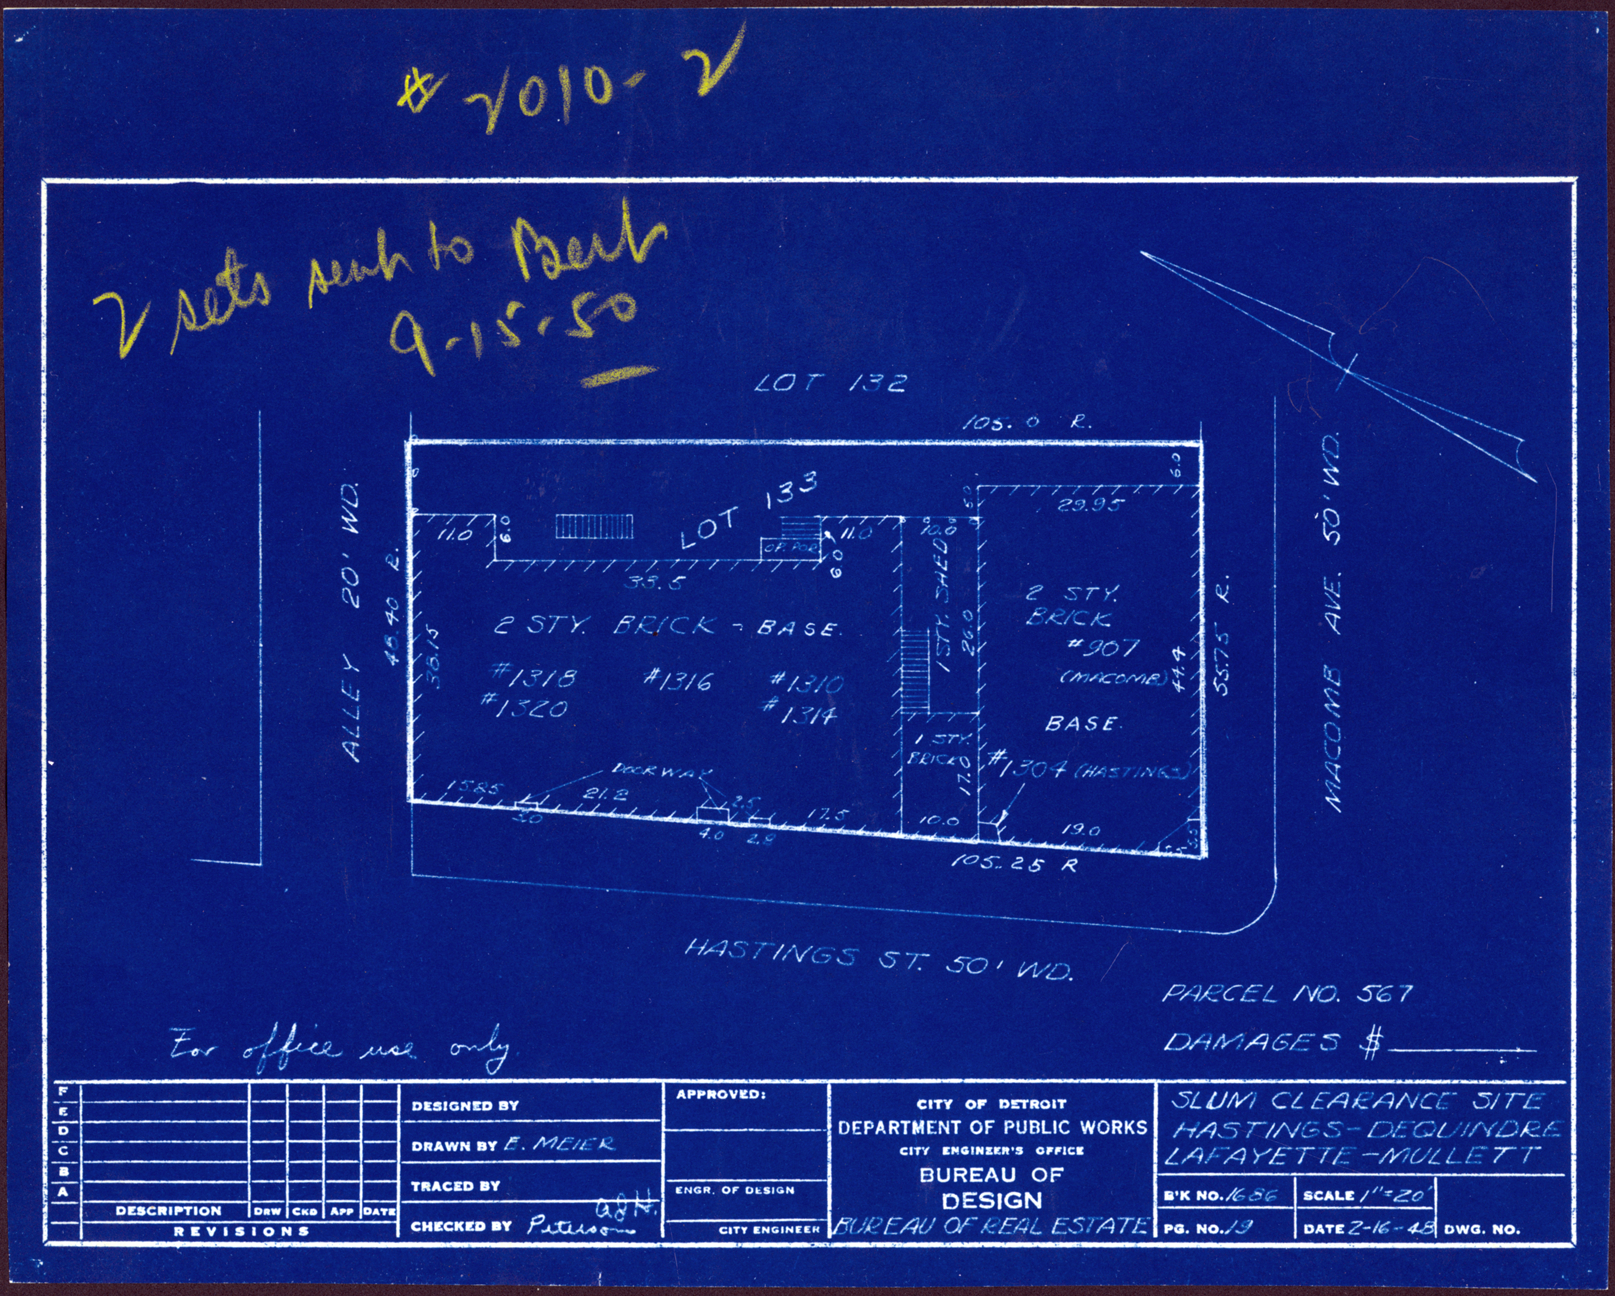 # 2010-2
2 sets sent to Bert
9-15-50
LOT 132
105.0 R.
6.0
29.95
LOT 133
11.0
6.0
OP. POR.
11.0
6.0
10.0
33.5
ALLEY 20' WD.
48.40 R.
38.15
2 STY. BRICK - BASE.
#1318
#1320
#1316
#1310
#1314
1 STY. SHED
26.0
2 STY.
BRICK
#907
(MACOMB)
BASE.
44.4
55.75 R.
MACOMB AVE. 50' WD.
1 STY.
BRICK
17.0
#1304 (HASTINGS)
DOORWAY
15.85
21.2
2.5
17.5
10.0
19.0
5.0
4.0
2.8
105.25 R
HASTINGS ST. 50' WD.
PARCEL NO. 567
DAMAGES $
For office use only.
F
E
D
C
B
A
DESCRIPTION DRW CKD APP DATE
REVISIONS
DESIGNED BY
DRAWN BY E. MEIER
TRACED BY
CHECKED BY Peterson
APPROVED:
ENGR. OF DESIGN
CITY ENGINEER
CITY OF DETROIT
DEPARTMENT OF PUBLIC WORKS
CITY ENGINEER'S OFFICE
BUREAU OF
DESIGN
BUREAU OF REAL ESTATE
SLUM CLEARANCE SITE
HASTINGS-DEQUINDRE
LAFAYETTE-MULLETT
B'K NO. 1686
SCALE 1"=20'
PG. NO. 19
DATE 2-16-48
DWG. NO.